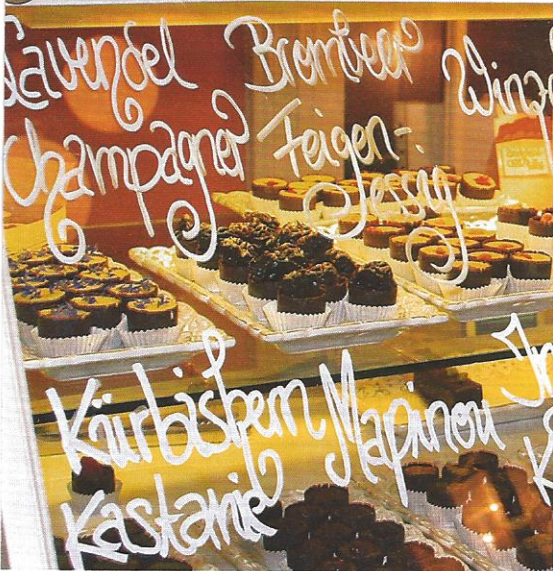 Lavendel
Champagner
Brombeer
Feigen-
Essig
Kürbiskern
Kastanie
Mapinou